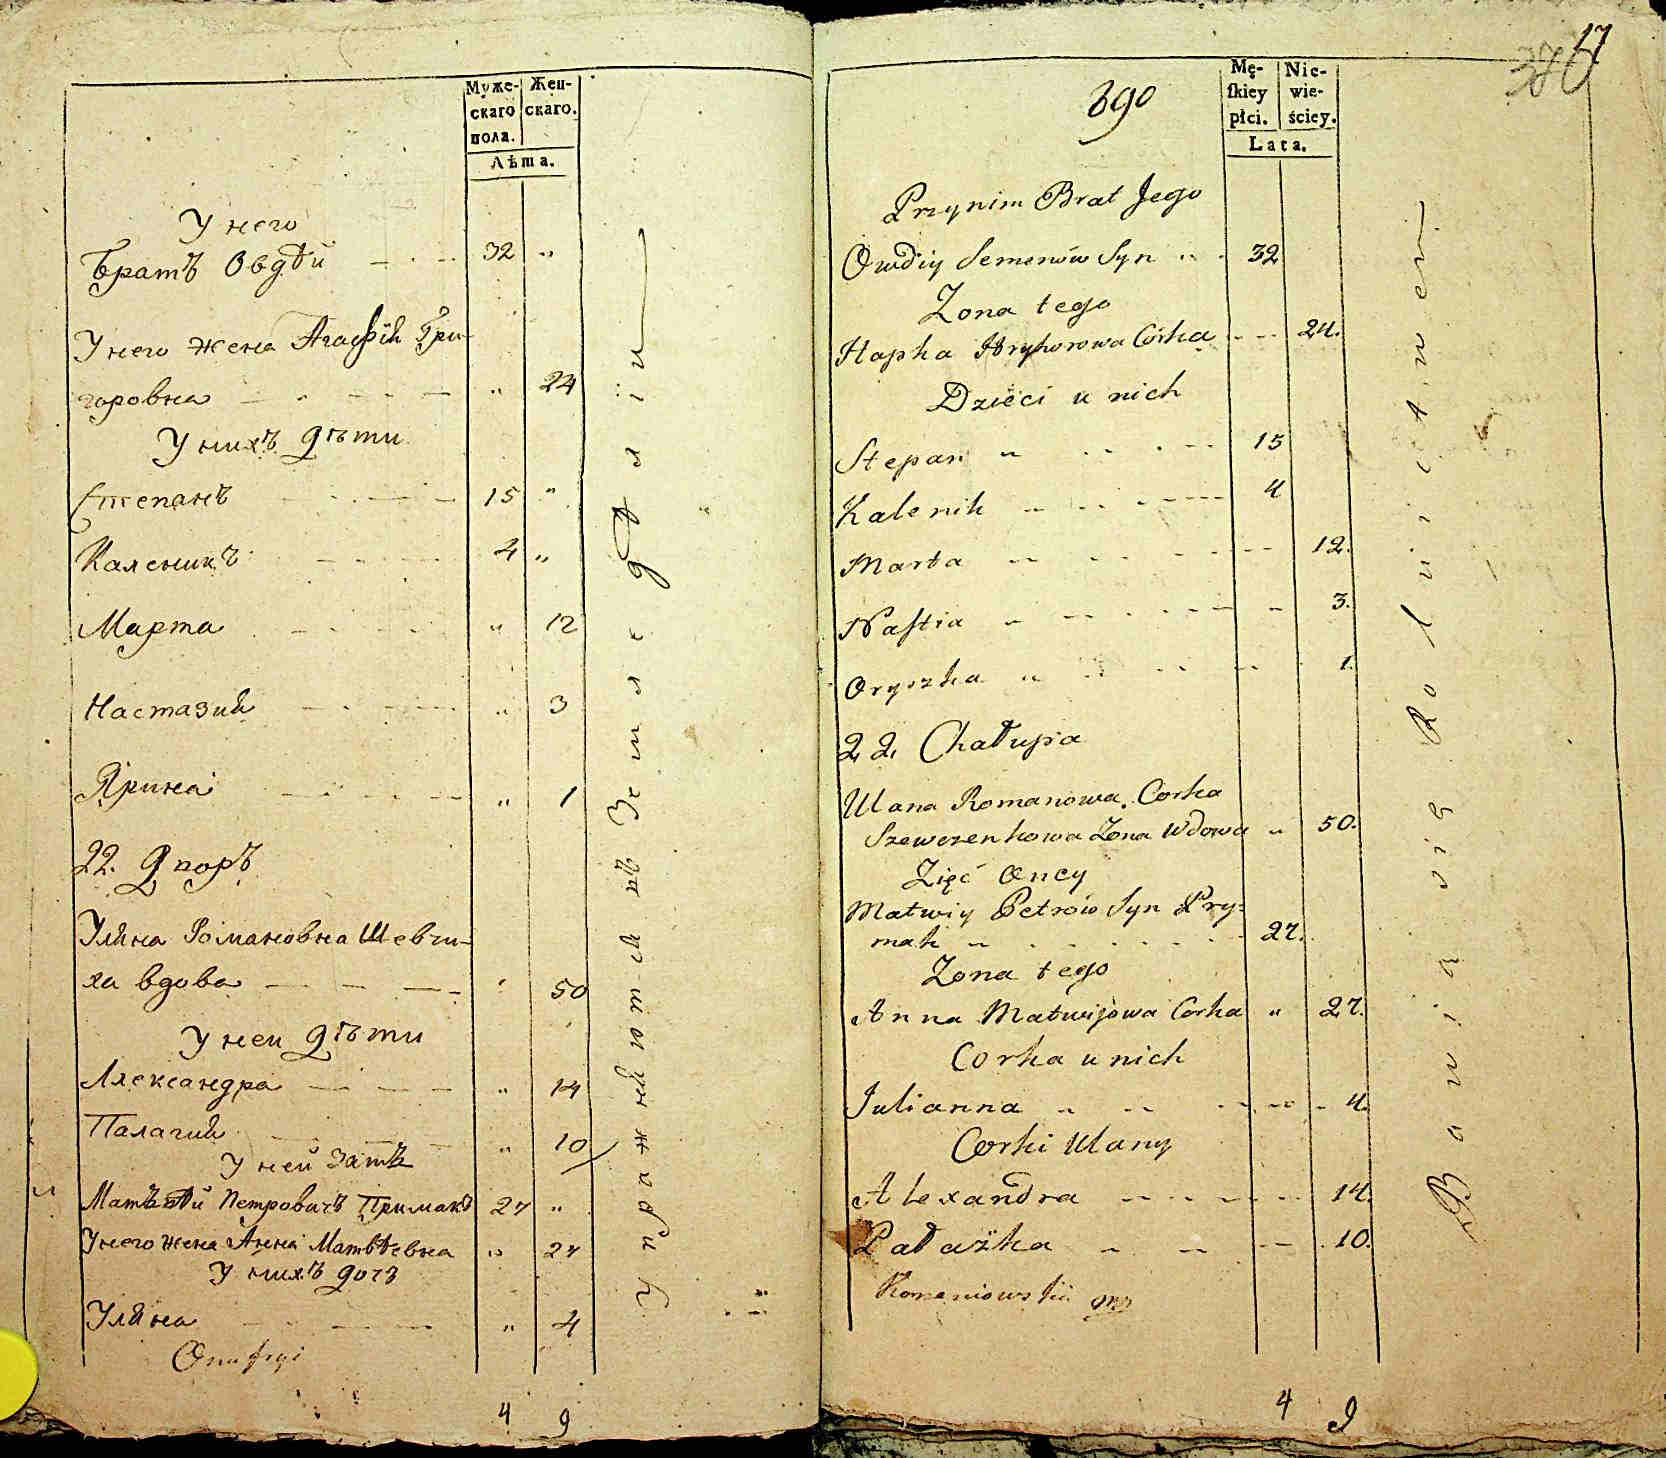 Муже-
скаго
пола.
Жен-
скаго.
Лѣта.
У него
Братъ Овдѣй 32 "
У него жена Агафія Гри-
горовна " 24
У нихъ дѣти
Степанъ 15 "
Каленикъ 4 "
Марта " 12
Настазия " 3
Ярина " 1
22. Дворъ
Уляна Романовна Шевчи-
ха вдова " 50
У неи дѣти
Александра " 14
Палагия " 10
У ней зять
Матвѣй Петровичъ Примакъ 27 "
У него жена Анна Матвѣевна " 27
У нихъ дочь
Уляна " 4
Onufryi
4 9
Упражняются въ земледѣлiи
17
390
Mę-
skiey
płci.
Nie-
wie-
ściey.
Lata.
Przynim Brat Jego
Owdiy Semenów Syn 32
Zona tego
Hapka Hryhorowa Córka 24.
Dzieci u nich
Stepan 15
Kalenik 4
Marta 12.
Nastia 3.
Oryszka 1.
22. Chałupa
Ulana Romanowa Corka
Szewczenkowa Zona Wdowa " 50.
Zięć Oney
Matwiy Petrów Syn Pry-
mak 27.
Zona tego
Anna Matwijowa Corka " 27.
Corka u nich
Julianna 4.
Corki Ulany
Alexandra 14.
Pałażka 10.
4 9
Bawia się Rolnictwem